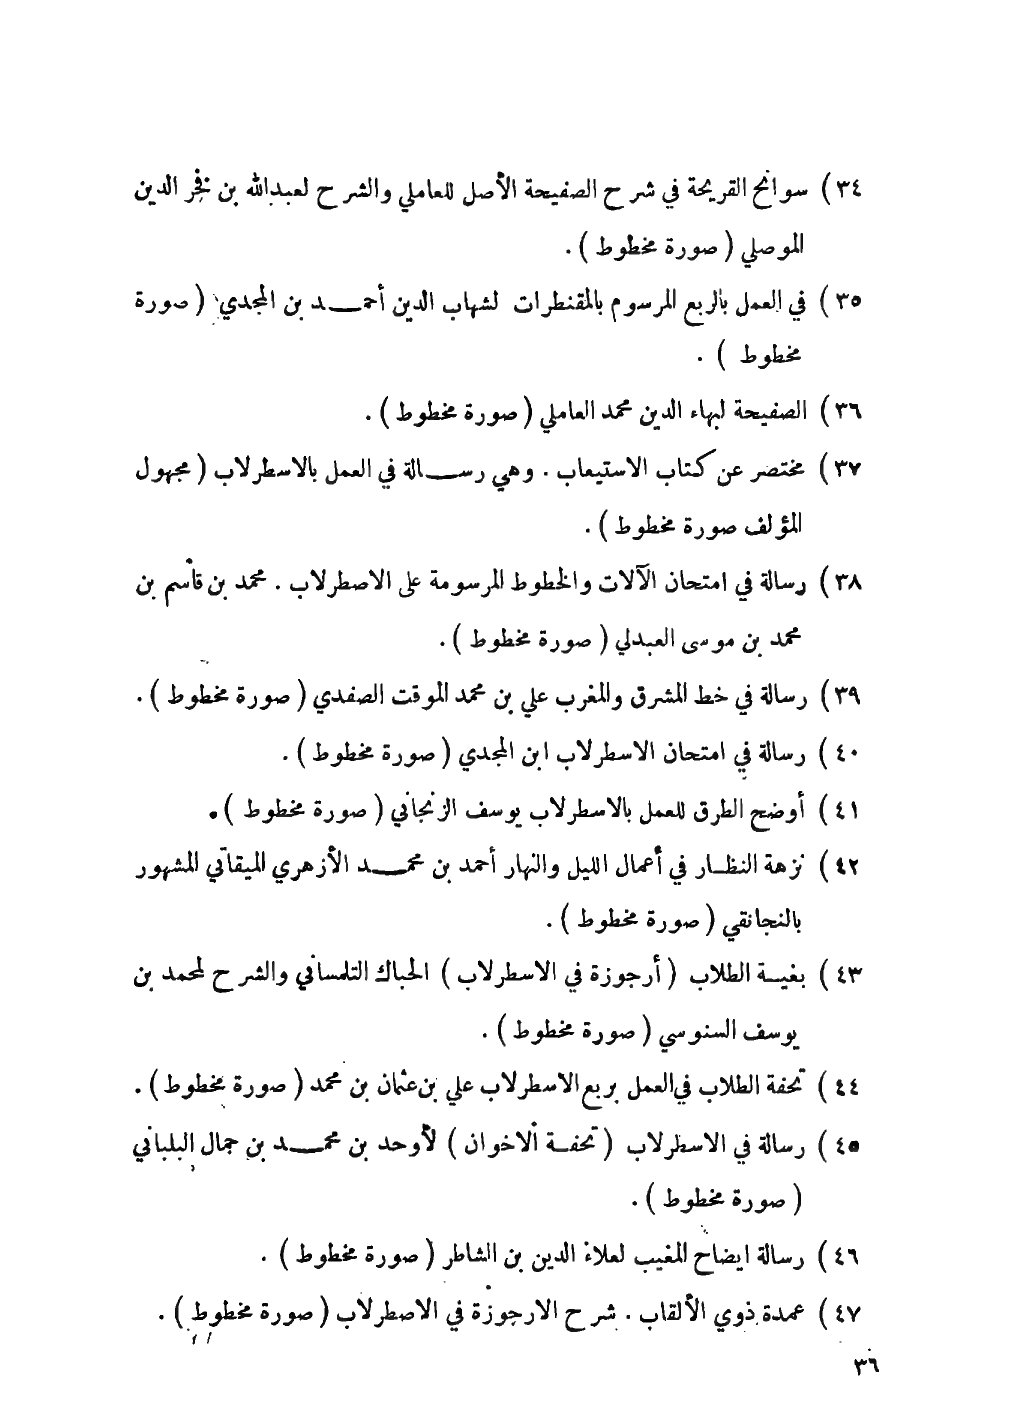 ٣٤) سوانح القريحة في شرح الصفيحة الأصل للعاملي والشرح لعبدالله بن فخر الدين
الموصلي (صورة مخطوط).
٣٥) في العمل بالربع المرسوم بالمقنطرات لشهاب الدين أحمــد بن المجدي (صورة
مخطوط).
٣٦) الصفيحة لبهاء الدين محمد العاملي (صورة مخطوط).
٣٧) مختصر عن كتاب الاستيعاب. وهي رســالة في العمل بالاسطرلاب (مجهول
المؤلف صورة مخطوط).
٣٨) رسالة في امتحان الآلات والخطوط المرسومة على الاصطرلاب. محمد بن قاسم بن
محمد بن موسى العبدلي (صورة مخطوط).
٣٩) رسالة في خط المشرق والمغرب علي بن محمد الموقت الصفدي (صورة مخطوط).
٤٠) رسالة في امتحان الاسطرلاب ابن المجدي (صورة مخطوط).
٤١) أوضح الطرق للعمل بالاسطرلاب يوسف الزنجاني (صورة مخطوط).
٤٢) نزهة النظـار في أعمال الليل والنهار أحمد بن محمــد الأزهري الميقاتي المشهور
بالنجانقي (صورة مخطوط).
٤٣) بغيـة الطلاب (أرجوزة في الاسطرلاب) الحباك التلمساني والشرح لمحمد بن
يوسف السنوسي (صورة مخطوط).
٤٤) تحفة الطلاب في العمل بربع الاسطرلاب علي بن عثمان بن محمد (صورة مخطوط).
٤٥) رسالة في الاسطرلاب (تحفـة الاخوان) لأوحد بن محمــد بن جمال البلباني
(صورة مخطوط).
٤٦) رسالة ايضاح المغيب لعلاء الدين بن الشاطر (صورة مخطوط).
٤٧) عمدة ذوي الألقاب. شرح الارجوزة في الاصطرلاب (صورة مخطوط).
٣٦